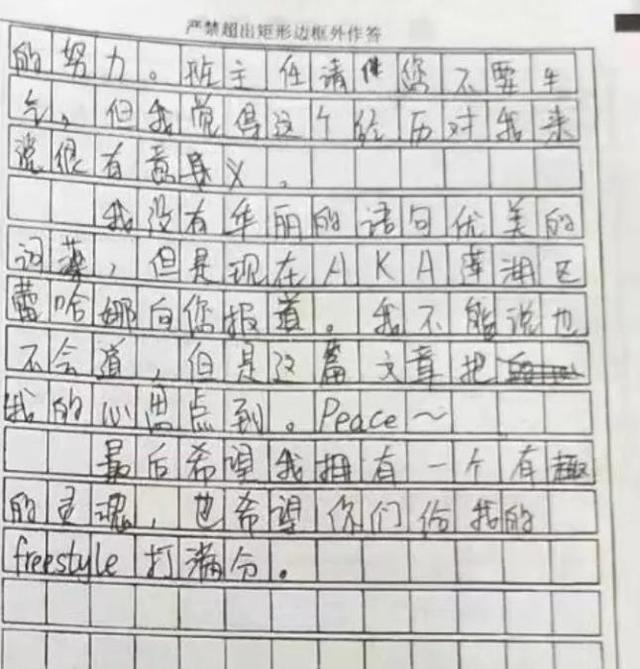 严禁超出矩形边框外作答
的努力。班主任请您不要生
气，但我觉得这个经历对我来
说很有意义。
我没有华丽的语句优美的
词藻，但是现在AKA莲湖区
蕾哈娜向您报道。我不能说也
不会道，但是这篇文章把
我的心思点到。Peace～
最后希望我拥有一个有趣
的灵魂，也希望你们给我的
freestyle打满分。